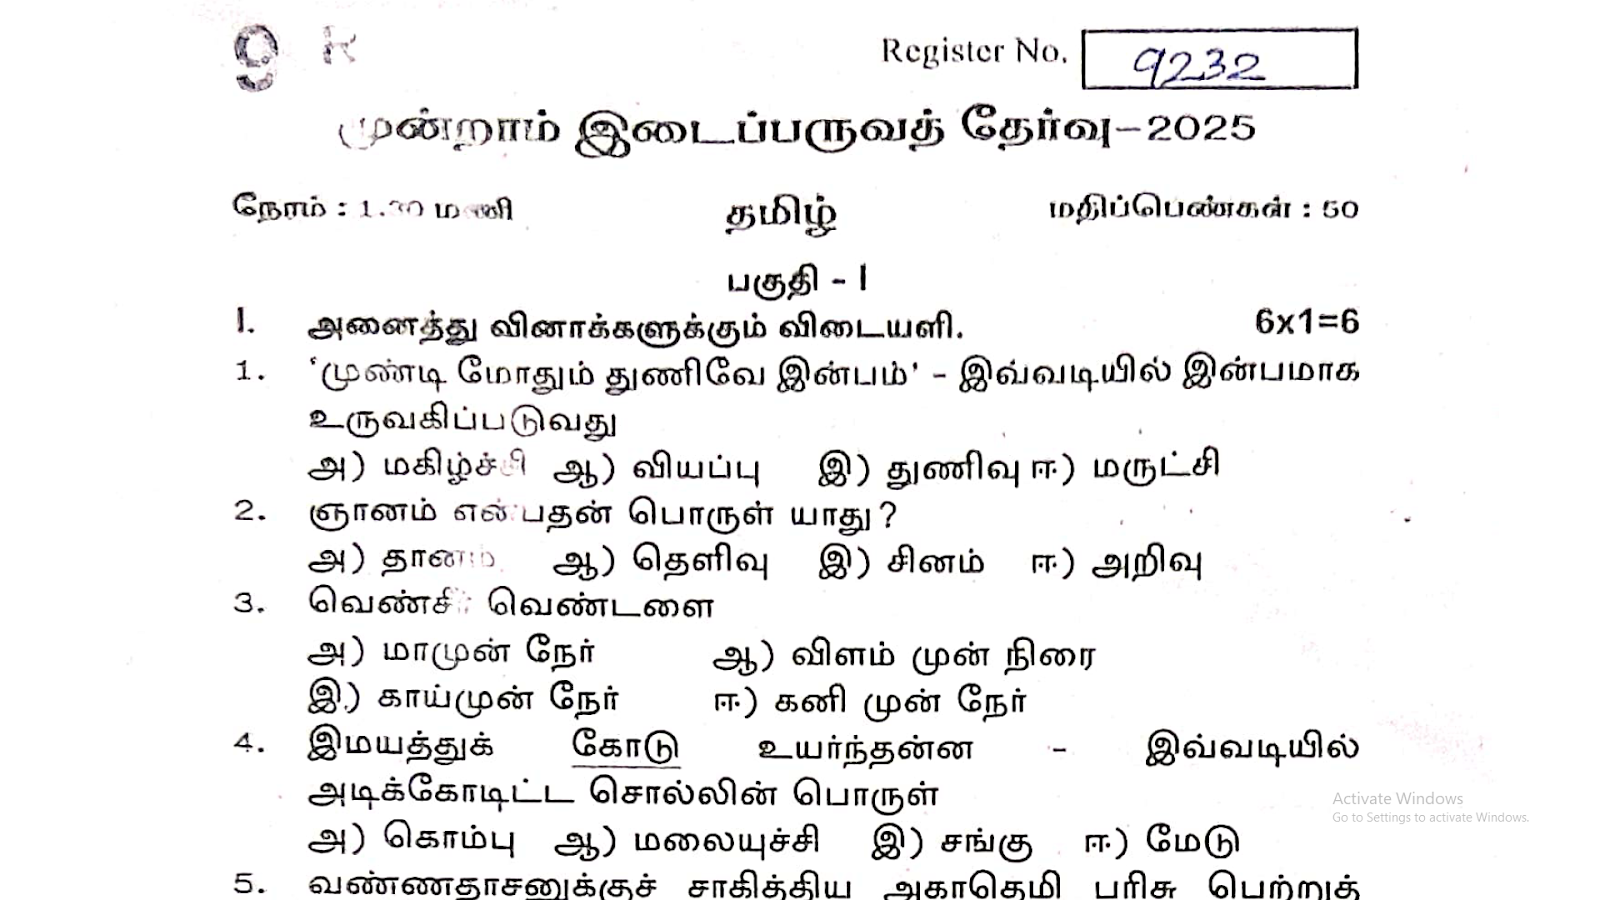 9 R
Register No. 9232
மூன்றாம் இடைப்பருவத் தேர்வு–2025
நேரம் : 1.30 மணி தமிழ் மதிப்பெண்கள் : 50
பகுதி - I
I. அனைத்து வினாக்களுக்கும் விடையளி. 6x1=6
1. ‘முண்டி மோதும் துணிவே இன்பம்’ - இவ்வடியில் இன்பமாக
உருவகிப்படுவது
அ) மகிழ்ச்சி ஆ) வியப்பு இ) துணிவு ஈ) மருட்சி
2. ஞானம் என்பதன் பொருள் யாது?
அ) தானம் ஆ) தெளிவு இ) சினம் ஈ) அறிவு
3. வெண்சீர் வெண்டளை
அ) மாமுன் நேர் ஆ) விளம் முன் நிரை
இ) காய்முன் நேர் ஈ) கனி முன் நேர்
4. இமயத்துக் கோடு உயர்ந்தன்ன - இவ்வடியில்
அடிக்கோடிட்ட சொல்லின் பொருள்
அ) கொம்பு ஆ) மலையுச்சி இ) சங்கு ஈ) மேடு
5. வண்ணதாசனுக்குச் சாகித்திய அகாதெமி பரிசு பெற்றுத்
Activate Windows
Go to Settings to activate Windows.